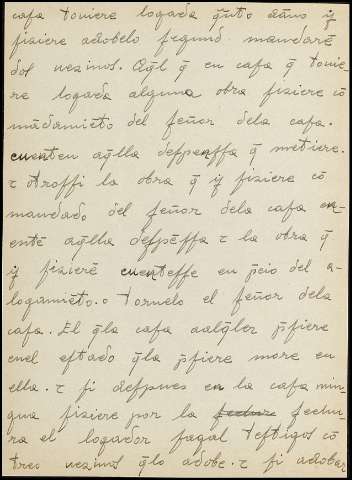 cafa toviere logada q̃nto dãno y
fiziere adobelo fegund. mandarẽ
dos vezinos. Aq̃l q̃ en cafa q̃ tovie-
re logada alguna obra fiziere cõ
mãdamiẽto del feñor dela cafa.
cuenten aq̃lla defpenffa q̃ metiere.
τ otroffi la obra q̃ y fiziere cõ
mandado del feñor dela cafa en-
entẽ aq̃lla defpẽffa τ la obra q̃
y fizierẽ cuenteffe en p̃cio del a-
logamiẽto. o tornelo el feñor dela
cafa. El q̃la cafa aalq̃ler p̃fiere
enel eftado q̃la p̃fiere more en
ella. τ fi defpues en la cafa min-
gua fiziere por la fechura fechu-
ra el logador fagal teftigos cõ
tres vezinos q̃lo adobe. τ fi adobar